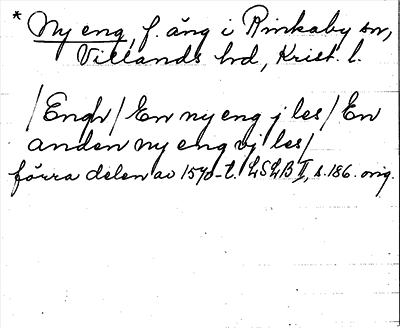 * Ny eng, f. äng i Rinkaby sn,
Villands hd, Krist. l.
/Engh/ En ny eng j les/ En
anden ny eng vj les/
förra delen av 1570-t. LSLB II, s. 186. orig.